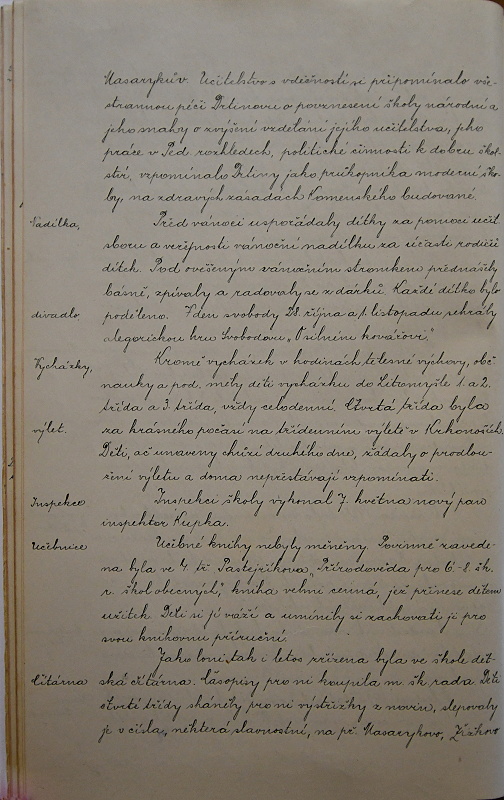 Masarykův. Učitelstvo s vděčností si připomínalo vše-
strannou péči Drtinovu o povznesení školy národní a
jeho snahy o zvýšení vzdělání jejího učitelstva, jeho
práce v Ped. rozhledech, politické činnosti k dobru škol-
ství, vzpomínalo Drtiny, jako průkopníka moderní ško-
ly, na zdravých zásadách Komenského budované.
Nadílka, Před vánoci uspořádaly dítky za pomoci učit.
sboru a veřejnosti vánoční nadílku za účasti rodičů
dítek. Podověšeným vánočním stromkem přednášely
básně, zpívaly a radovaly se z dárků. Každé dítko bylo
divadlo, poděleno. V den svobody 28. října a 1. listopadu sehrály
alegorickou hru Svobodovu „O silném kovářovi."
Vycházky, Kromě vycházek v hodinách tělesné výchovy, obč.
nauky a pod. měly děti vycházku do Litomyšle 1. a 2.
třída a 3. třída, vždy celodenní. Čtvrtá třída byla
výlet. za krásného počasí na třídenním výletě v Krkonoších.
Děti, ač unaveny chůzí druhého dne, žádaly o prodlou-
žení výletu a doma nepřestávají vzpomínati.
Inspekce Inspekci školy vykonal 7. května nový pan
inspektor Kupka.
Učebnice Učebné knihy nebyly měněny. Povinně zavede-
na byla ve 4. tř. Pastejříkova „Přírodověda pro 6.-8. šk.
r. škol obecných", kniha velmi cenná, jež přinese dětem
užitek. Děti si jí váží a umínily si zachovati ji pro
svou knihovnu příruční.
Jako loni, tak i letos zřízena byla ve škole dět-
čítárna ská čítárna. Časopisy pro ni koupila m. šk. rada. Děti
čtvrté třídy sháněly pro ni výstřižky z novin, slepovaly
je v čísla, některá slavnostní, na př. Masarykovo, Žižkovo